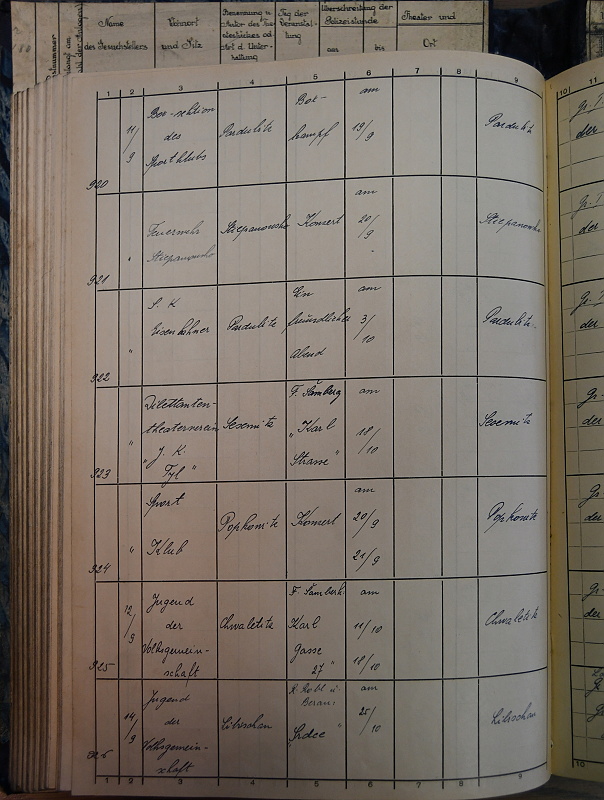 Name
des Gesuchstellers
Wohnort
und Sitz
Benennung u.
Autor des The-
aterstückes od
Art d. Unter-
haltung
Tag der
Veranstal-
tung
Überschreitung der
Polizeistunde
aus
bis
Theater und
Ort
1 2 3 4 5 6 7 8 9 10 11
920
11/9
Box-sektion
des
Sportklubs
Pardubitz
Box-
kampf
am
19/9
Pardubitz
921
"
Feuerwehr
Stiepanowsko
Stiepanowsko
Konzert
am
20/9
Stiepanowsko
922
"
S. K
Eisenbahner
Pardubitz
Ein
freundlicher
Abend
am
3/10
Pardubitz
923
"
Dilettanten-
theaterverein
"J. K.
Tyl"
Sesemitz
F. Šamberg
"Karl
Strasse"
am
18/10
Sesemitz
924
"
Sport
Klub
Popkowitz
Konzert
am
20/9
21/9
Popkowitz
925
12/9
Jugend
der
Volksgemein-
schaft
Chwaletitz
F Šamberk:
Karl
Gasse
27"
am
11/10
18/10
Chwaletitz
926
14/9
Jugend
der
Volksgemein-
schaft
Libischan
Beran:
"Srdce"
am
25/10
Libischan
1 2 3 4 5 6 7 8 9 10